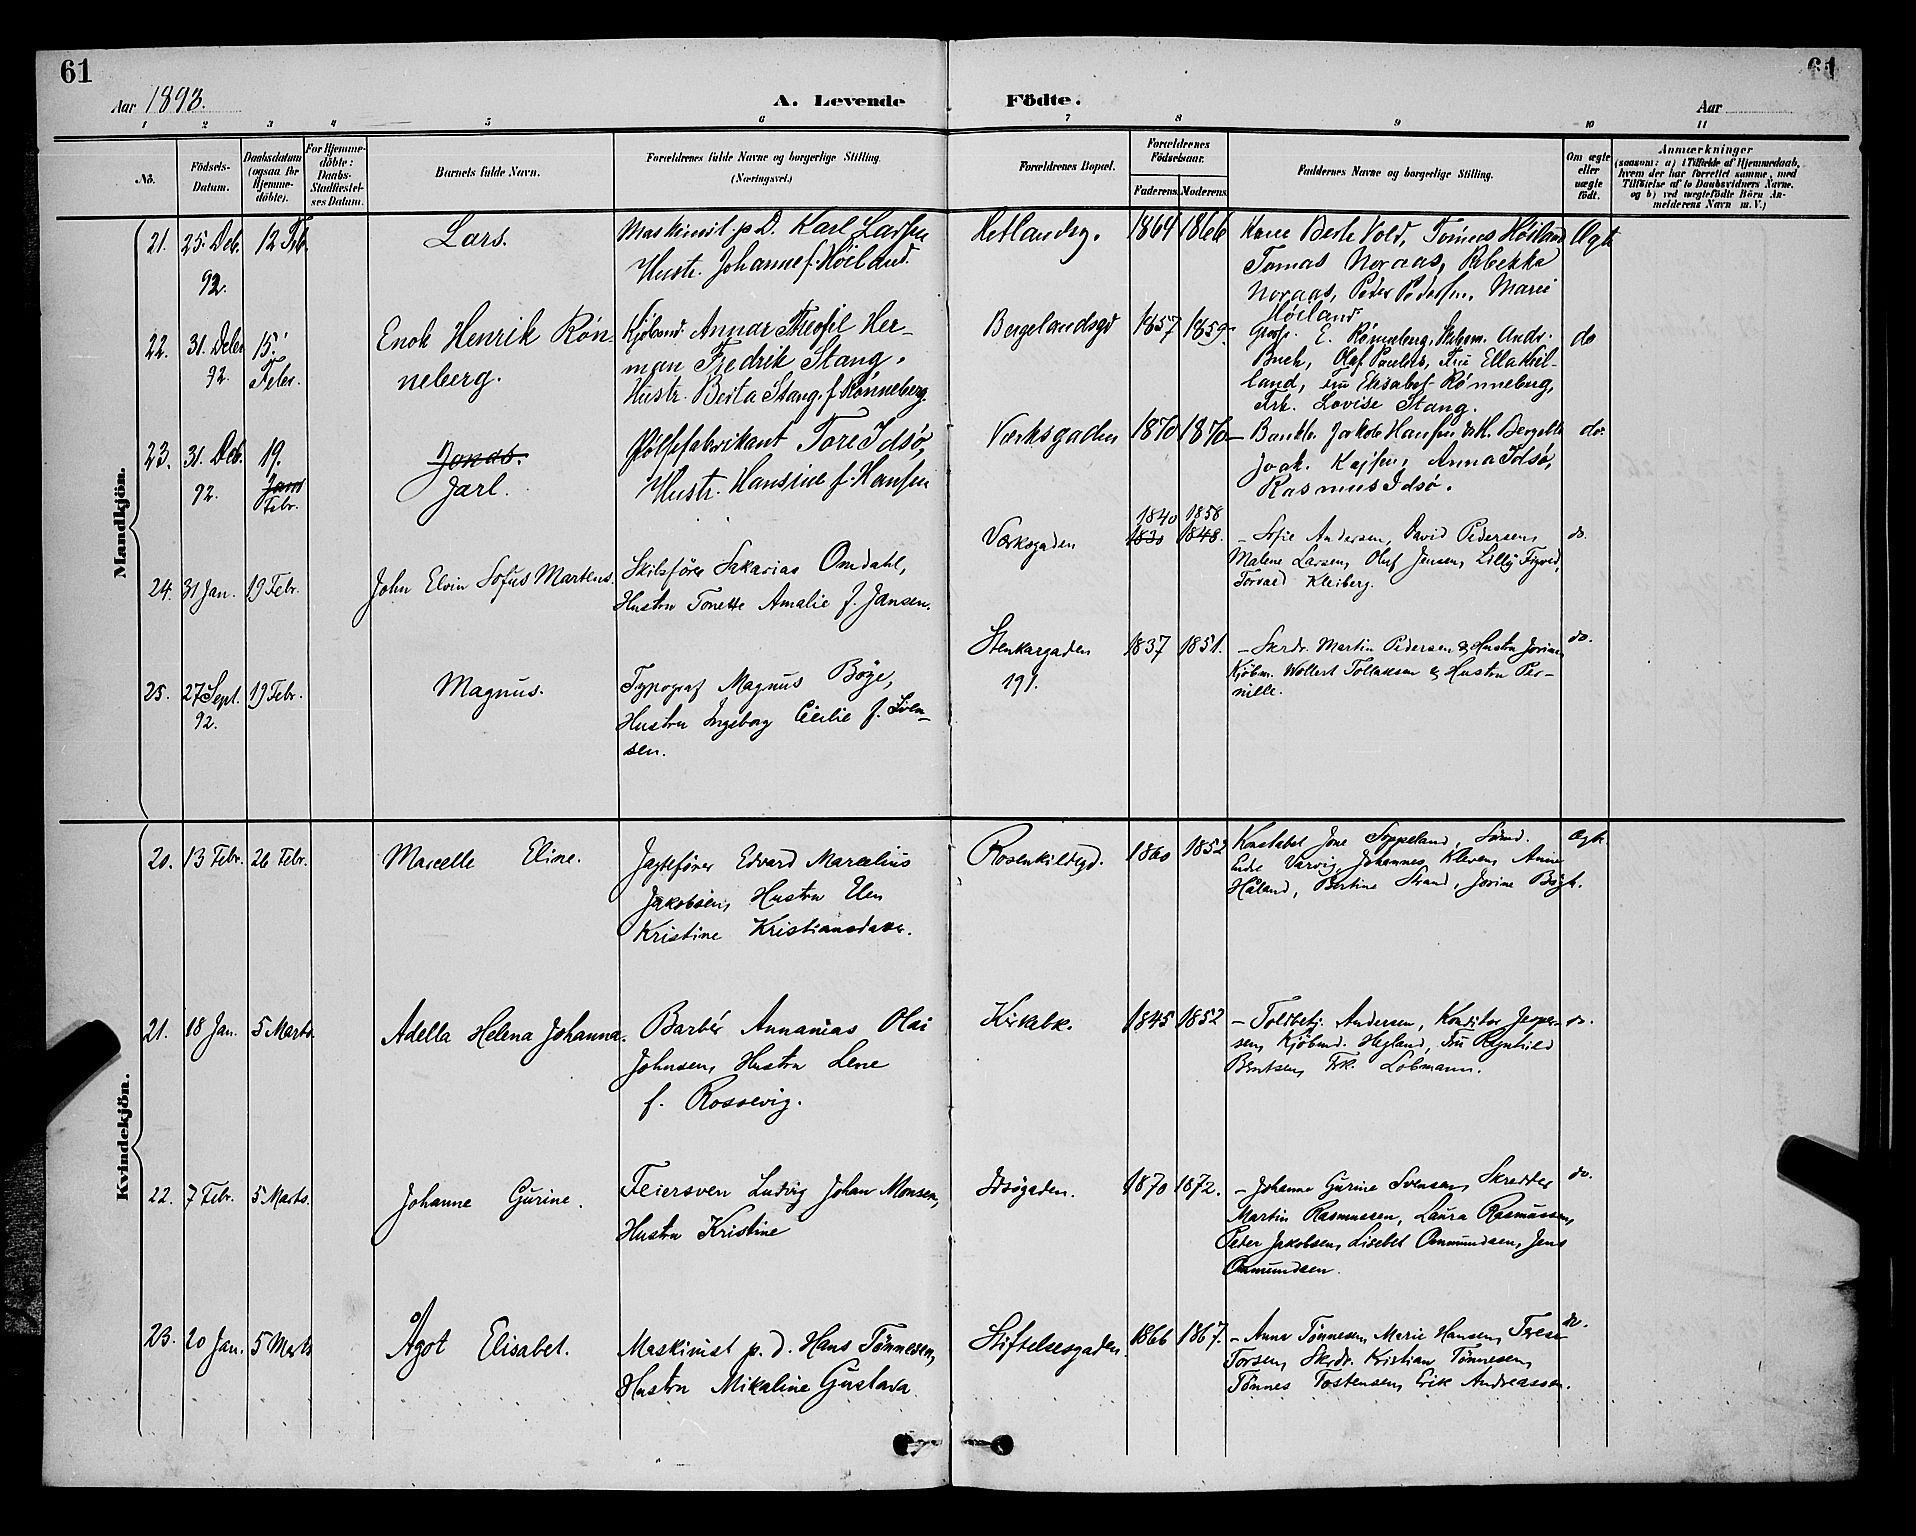 61
61
Aar 1893.
A. Levende
Födte.
Aar
1 2 3 4 5 6 7 8 9 10 11
No.
Födsels-Datum.
Daabsdatum (ogsaa for Hjemmedöbte).
For Hjemmedöbte: Daabs-Stadfæstelses Datum.
Barnets fulde Navn.
Forældrenes fulde Navne og borgerlige Stilling. (Næringsvei.)
Forældrenes Bopæl.
Forældrenes Födselsaar.
Faderens.
Moderens.
Faddernes Navne og borgerlige Stilling.
Om ægte eller uægte födt.
Anmærkninger
(saasom: a) i Tilfælde af Hjemmedaab,
hvem der har forrettet samme, med
Tilföielse af to Daabsvidners Navne,
og b) ved uægtefödte Börn Anmelderens Navn m. V.)
Mandkjön.
21. 25. Deb. 92. 12 Feb
Lars.
Maskinist p. D. Karl Larsen
Hustr. Johanne f. Höiland.
Hetlandsg.
1864 1866
Kone Berte Vold, Tonnes Höiland
Tomas Noraas, Rebekka
Noraas, Peder Pedersen, Marie
Höiland
Ægt
22. 31. Debr 92. 15. Febr.
Enok Henrik Rön-
neberg.
Kjöbmd. Annar Theofil Her-
man Fredrik Stang,
Hustr. Berta Stang, f. Rönneberg
Bergelandsgd
1857 1859
E. Rönneberg, Andr.
Buch, Olaf Frue Ella Kiel-
land, fru Elisabet Rönneberg,
Frk. Lovise Stang.
do
23. 31. Deb. 92. 19. Jan Febr.
Jonas.
Jarl.
Pölsefabrikant Tore Idsö,
Hustr. Hansine f. Hansen
Verksgaden
1870 1870
Jakob Hansen
Joak. Anna Idsö,
Rasmus Idsö.
do.
24. 31 Jan. 19 Febr.
John Elvin Sofus Martens.
Skibsförer Sakarias Omdahl,
Hustru Tonette Amalie f. Jansen.
Verksgaden
1840 1858
1830 1848.
– Sofie Andersen, David Pedersen,
Malene Larsen, Oluf Jensen, Lilly
Torvald Kleiberg.
do.
25. 27 Sept. 92. 19 Febr.
Magnus.
Typograf Magnus Böje,
Hustru Ingeborg Cecilie f. Sven-
sen.
Stenkargaden
191.
1837 1851.
– Skrdr. Martin Pedersen & Hustru Jorine
Kjöbm. Wollert Tollaksen & Hustru Per-
nille.
do.
Kvindekjön.
20. 13 Febr. 26 Febr.
Marcelle Eline.
Jagtefører Edvard Marcelius
Jakobsen, Hustru Elen
Kristine Kristiansdater.
Rosenkildegd.
1860 1852
Konstabel Jone Soppeland,
Endre Varvig, Johannes Kleven, Anine
Håland, Bertine Strand, Jorine Bögh.
Ægt.
21. 18 Jan. 5 Marts
Adella Helena Johanna.
Barbér Annanias Olai
Johnsen, Hustru Lene
f. Rossevig.
Kirkebk.
1845 1852
– Toldbetj. Andersen, Konditor Jesper-
sen, Kjöbmd. Hegland, Fru Ragnhild
Berntsen, Frk. Löbmann.
do.
22. 7 Febr. 5 Marts.
Johanne Gurine.
Feiersven Ludvig Johan Monsen,
Hustru Kristine
Idsøgaden.
1870 1872.
– Johanne Gurine Svensen, Skredder
Martin Rasmussen, Laura Rasmussen,
Peter Jakobsen, Lisebet Ommundsen, Jens
Ommundsen.
do.
23. 20 Jan. 5 Marts
Ågot Elisabet.
Maskinist p. d. Hans Tönnesen,
Hustru Mikaline Gustava
Stiftelsesgaden.
1866 1867.
– Anna Tönnesen, Marie Hansen, Terese
Torsen, Skrdr. Kristian Tönnesen,
Tönnes Tostensen, Erik Andreassen.
do.